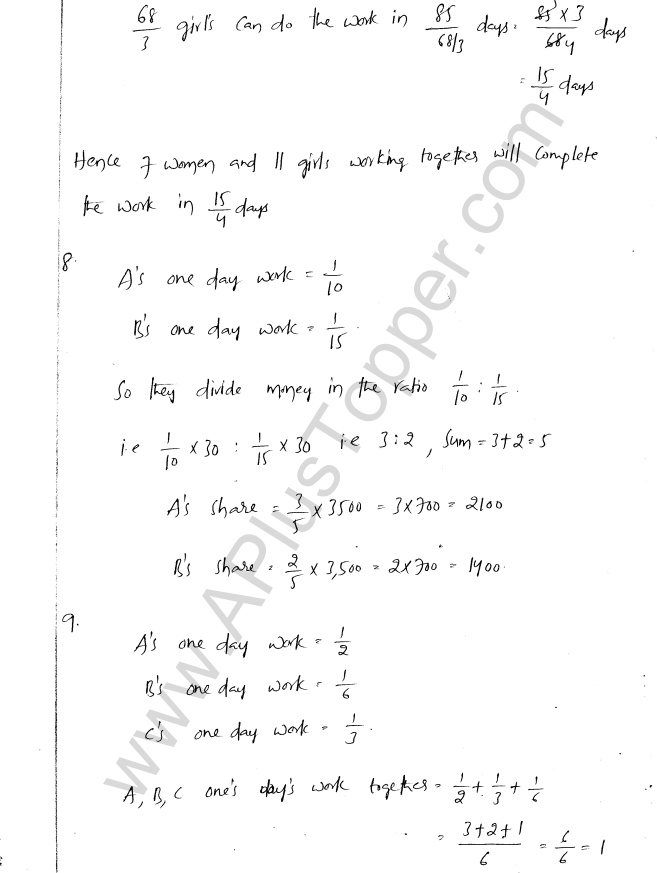 68/3 girl's can do the work in 85/(68/3) days. = (85 × 3)/(68 4) days
= 15/4 days
Hence 7 women and 11 girls working together will complete
the work in 15/4 days
8.
A's one day work = 1/10
B's one day work = 1/15.
So they divide money in the ratio 1/10 : 1/15.
i.e 1/10 × 30 : 1/15 × 30 i.e 3:2, Sum = 3+2 = 5
A's share = 3/5 × 3500 = 3×700 = 2100
B's share = 2/5 × 3,500 = 2×700 = 1400.
9.
A's one day work = 1/2
B's one day work = 1/6
C's one day work = 1/3.
A, B, C one's day's work together = 1/2 + 1/3 + 1/6
= (3+2+1)/6 = 6/6 = 1
www.APlusTopper.com